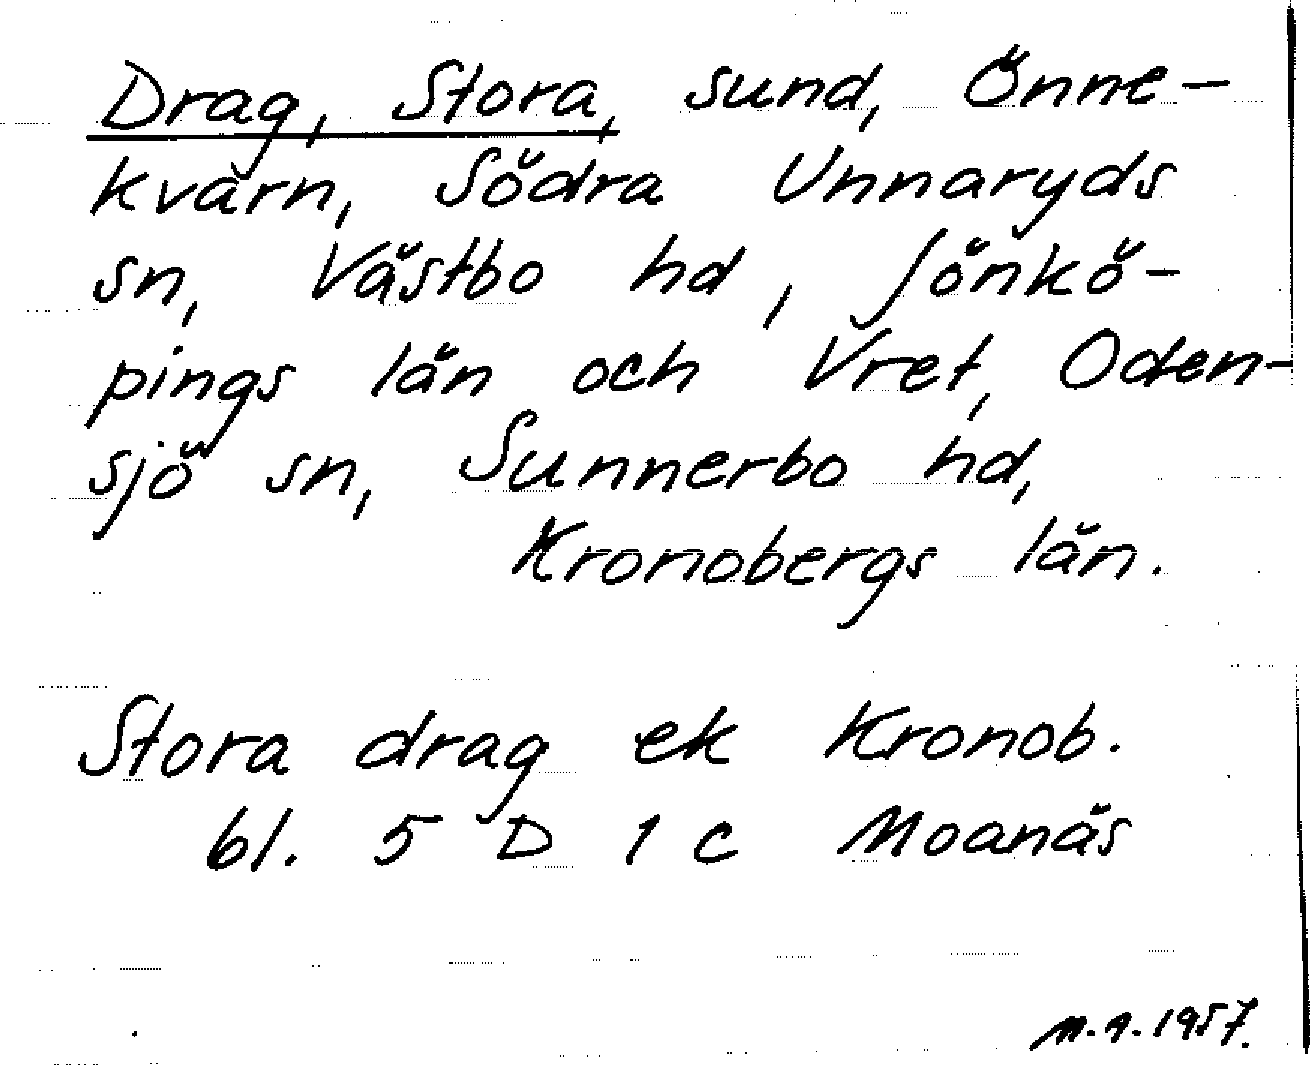 Drag, Stora, sund, Önne-
kvarn, Södra Unnaryds
sn, Västbo hd, Jönkö-
pings län och Vret, Oden-
sjö sn, Sunnerbo hd,
Kronobergs län.
Stora drag ek Kronob.
bl. 5 D 1 c Moanäs
1957.